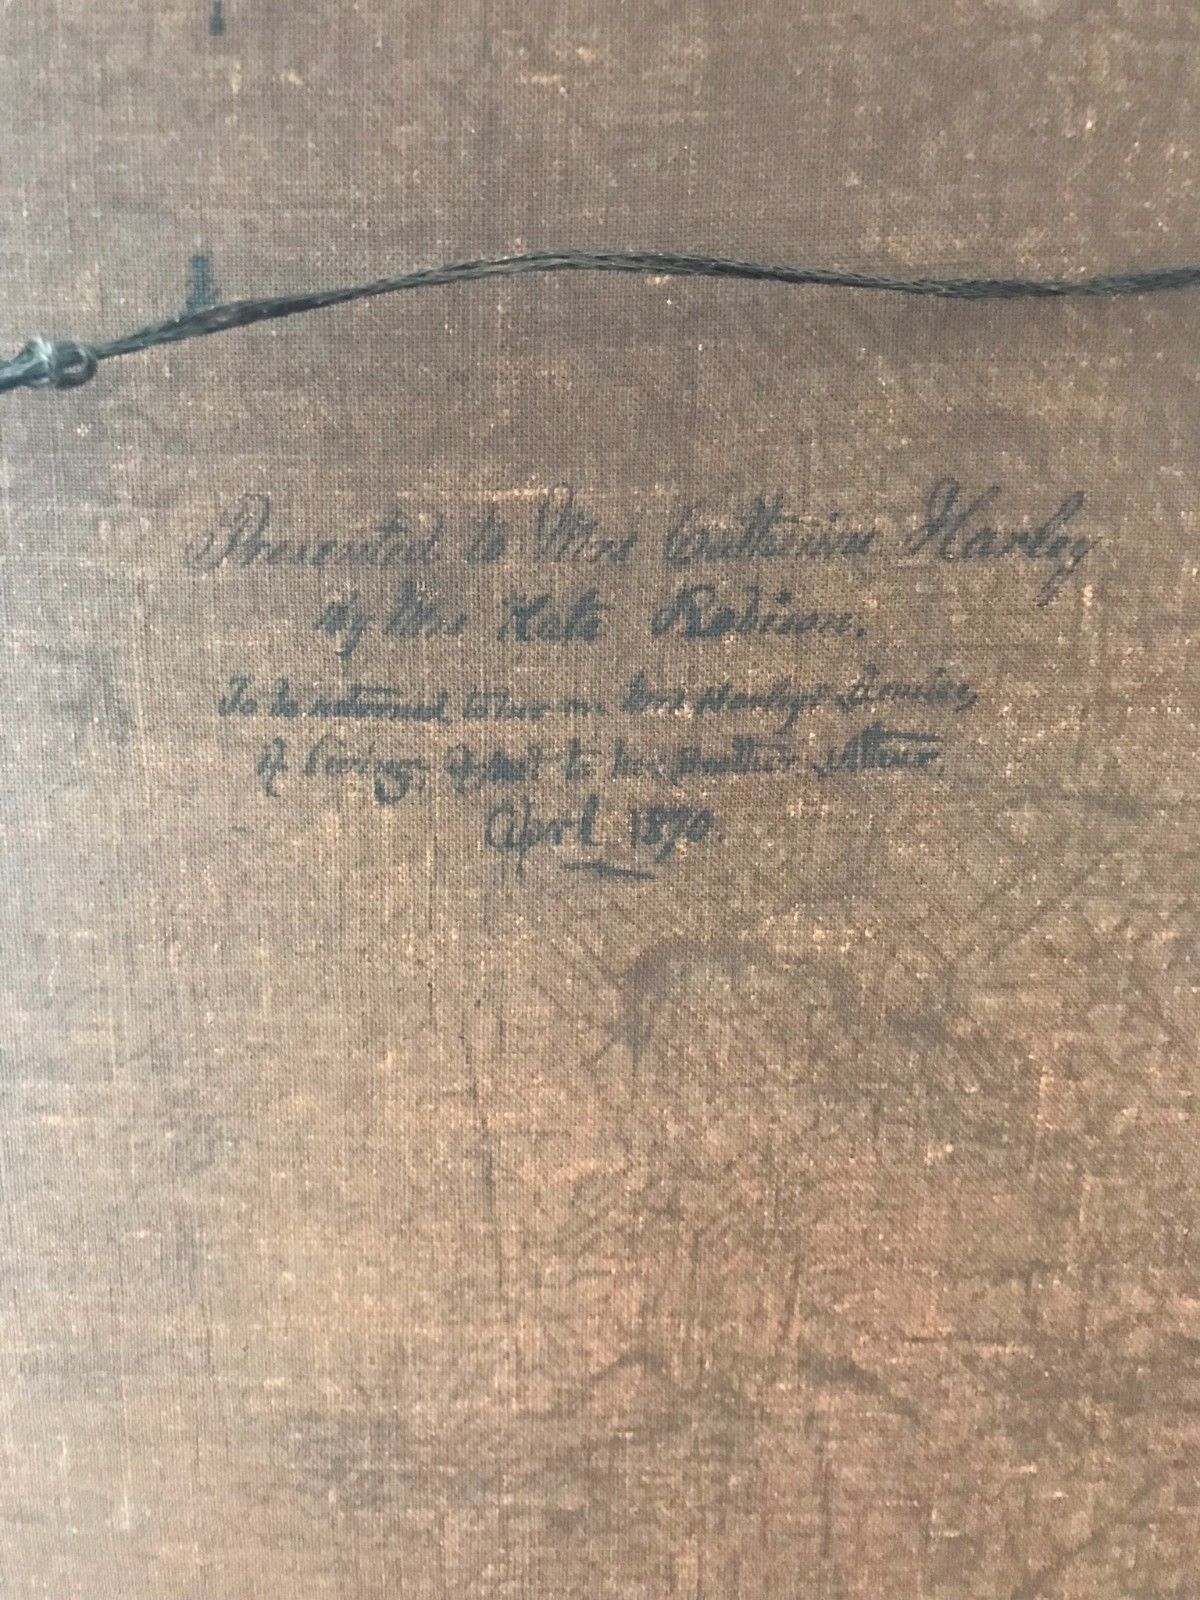 Presented to Mrs Catherine Harley
By Mrs Kate Robison.
To be returned to her on Mrs Harleys Demise,
if living, if not to her brother
April 1890.